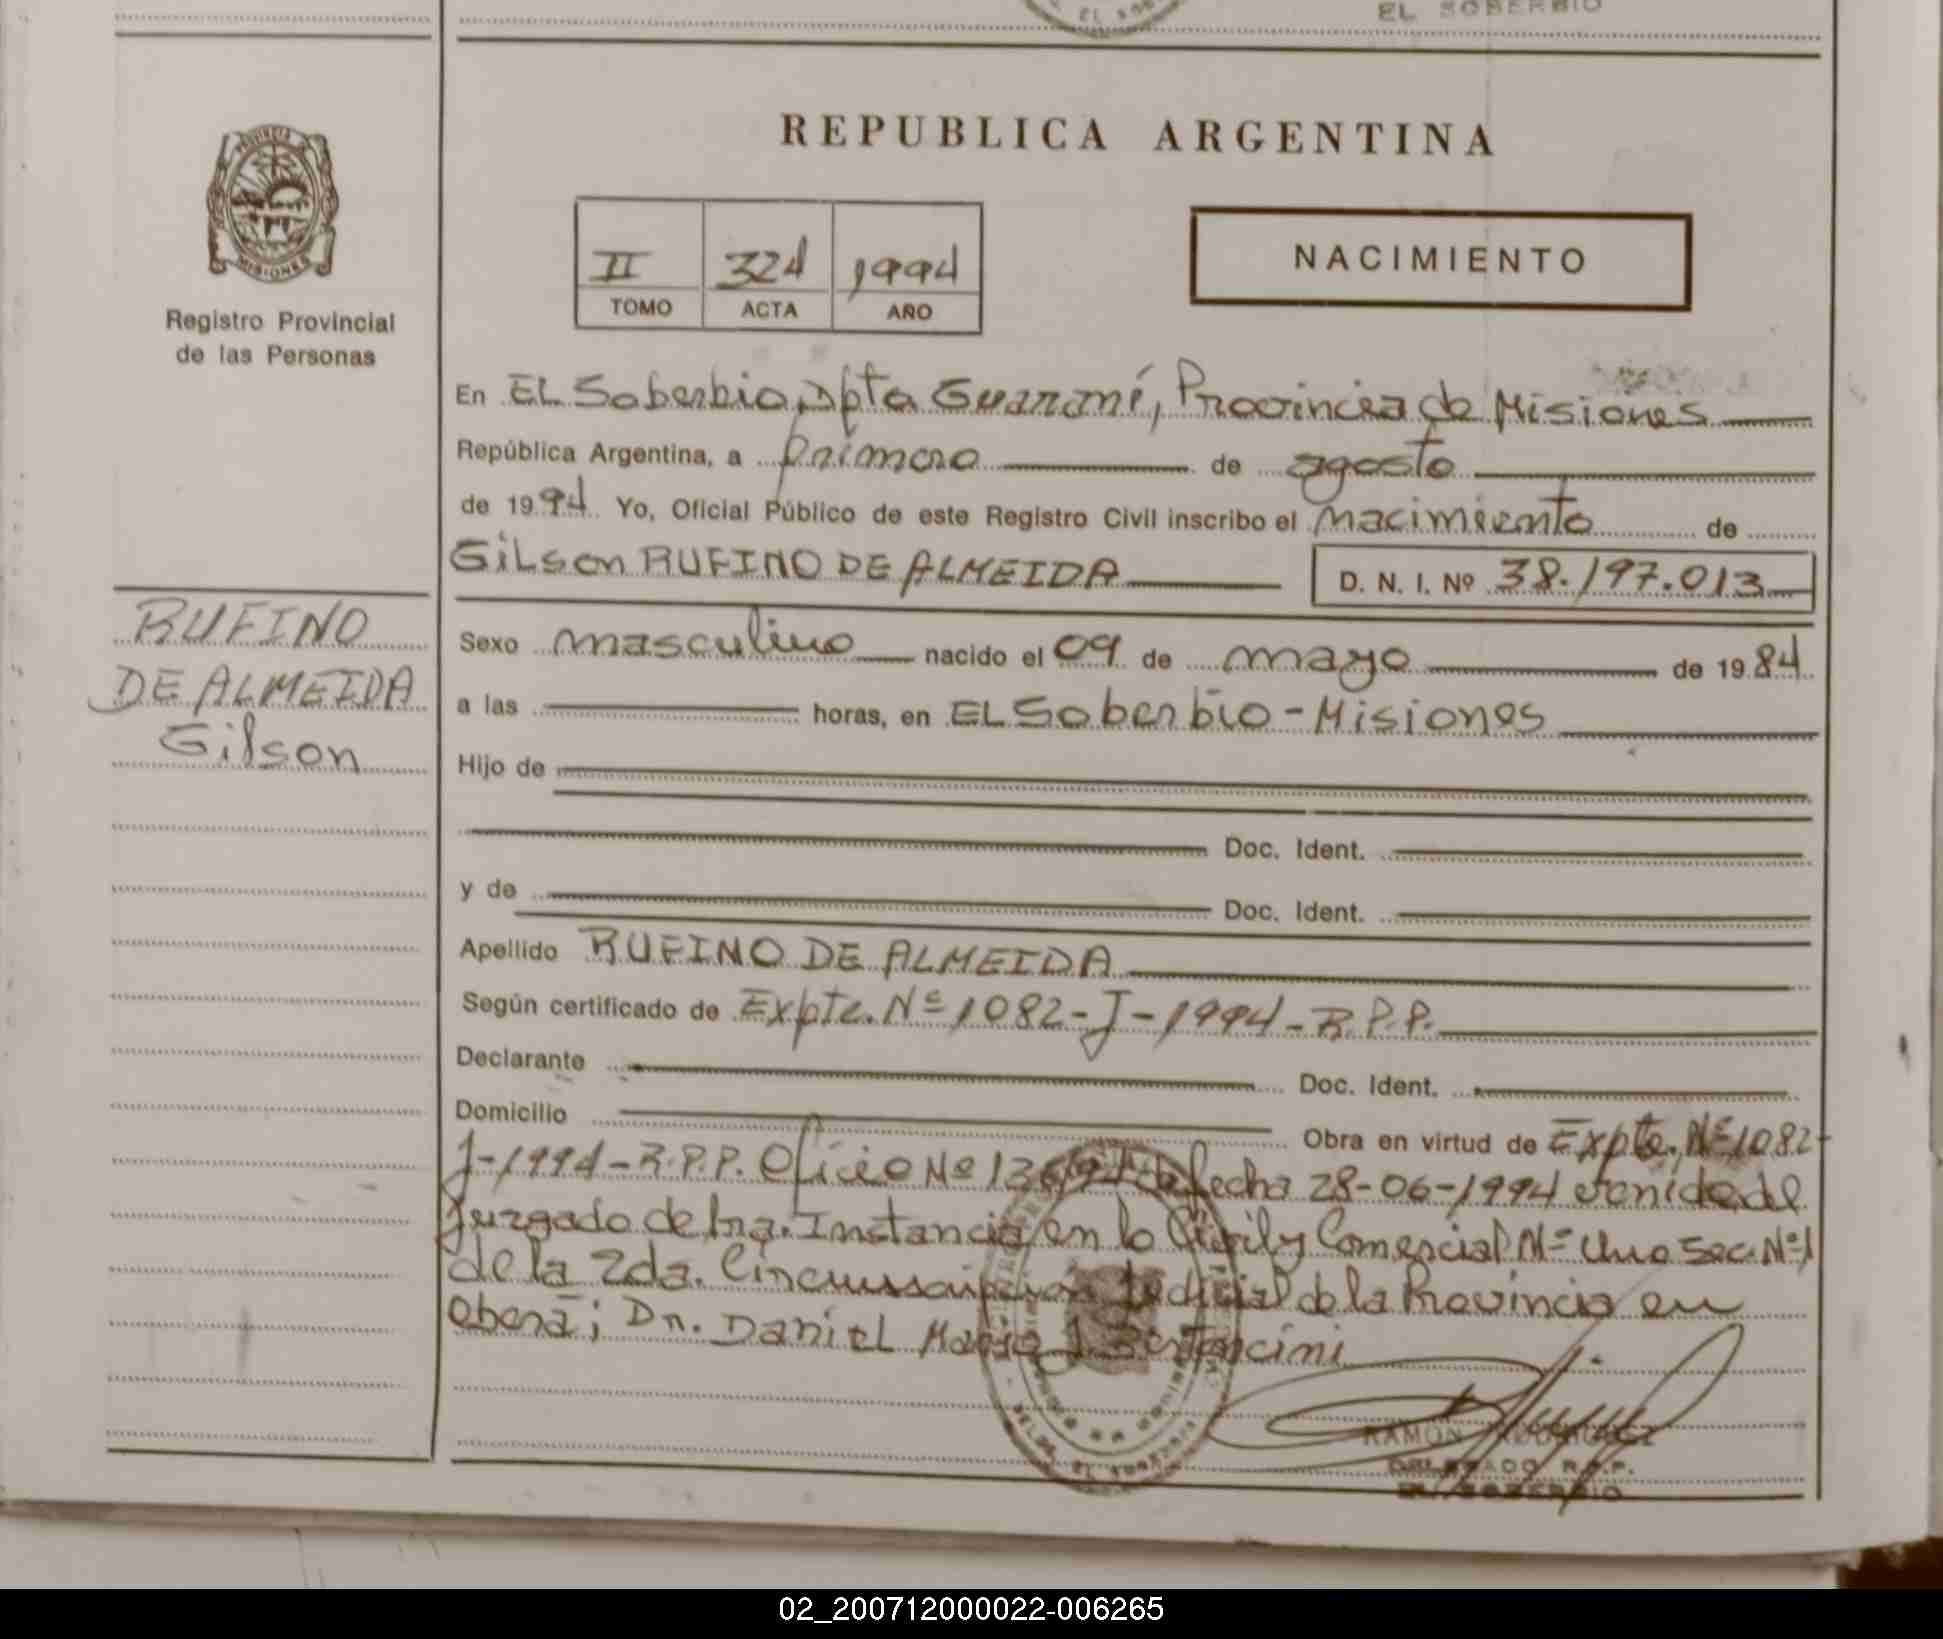 EL SOBERBIO
REPUBLICA ARGENTINA
PROVINCIA
MISIONES
Registro Provincial
de las Personas
II 324 1994
TOMO ACTA AÑO
NACIMIENTO
En EL Soberbio, Dpto Guaraní, Provincia de Misiones
República Argentina, a primero de agosto
de 1994 Yo, Oficial Público de este Registro Civil inscribo el nacimiento de
Gilson RUFINO DE ALMEIDA D. N. I. Nº 38.197.013
RUFINO
DE ALMEIDA
Gilson
Sexo masculino nacido el 09 de mayo de 1984
a las horas, en EL Soberbio - Misiones
Hijo de
Doc. Ident.
y de Doc. Ident.
Apellido RUFINO DE ALMEIDA
Según certificado de Expte. Nº 1082-J-1994-R.P.P.
Declarante Doc. Ident.
Domicilio
Obra en virtud de Expte. Nº 1082-
J-1994-R.P.P. Oficio Nº de fecha 28-06-1994 venido del
Juzgado de 1ra. Instancia en lo Civil y Comercial Nº Uno Sec. Nº 1
de la 2da. Circunscripción Judicial de la Provincia en
Oberá; Dn. Daniel
RAMON RODRIGUEZ
DELEGADO R.P.P.
EL SOBERBIO
02_200712000022-006265